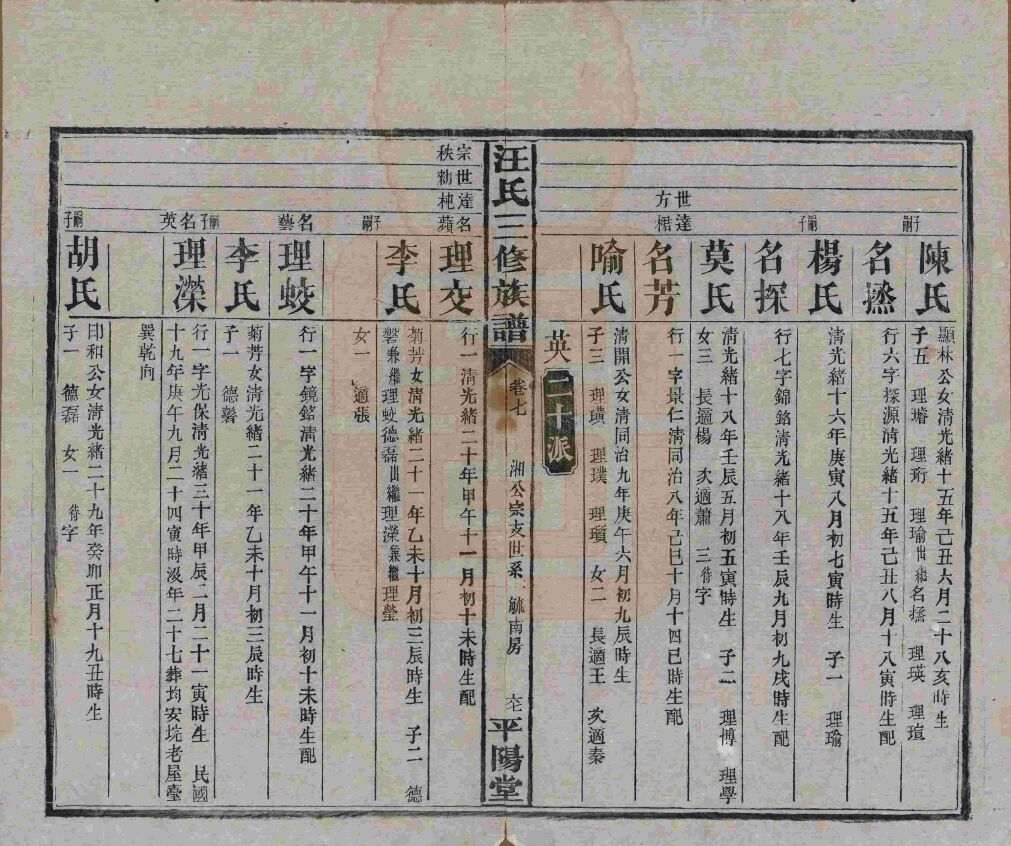 子嗣
陳氏
顯林公女清光緒十五年己丑六月二十八亥時生
子五　理璿　理珩　理瑜出繼名搽　理瑛　理瑄
名搽
行六字探源清光緒十五年己丑八月十八寅時生配
子嗣
楊氏
清光緒十六年庚寅八月初七寅時生　子一　理瑜
名探
行七字錦銘清光緒十八年壬辰九月初九戌時生配
莫氏
清光緒十八年壬辰五月初五寅時生　子二　理博　理學
女三　長適楊　次適蕭　三待字
世方
達桾
名芳
行一字景仁清同治八年己巳十月十四巳時生配
子嗣
喻氏
清開公女清同治九年庚午六月初九辰時生
子三　理璜　理璞　理瓚　女二　長適王　次適秦
英二十派
汪氏三修族譜
卷七
湘公宗支世系
毓南房
平陽堂
宗秩
世勑
達杶
名蘋
理交
行一清光緒二十年甲午十一月初十未時生配
子嗣
李氏
菊芳女清光緒二十一年乙未十月初三辰時生　子二　德
磐兼繼理蛟德磊出繼理濚兼繼理瑩
女一　適張
名藝
理蛟
行一字鏡銘清光緒二十年甲午十一月初十未時生配
子嗣
李氏
菊芳女清光緒二十一年乙未十月初三辰時生
子一　德磐
名英
理濚
行一字光保清光緒三十年甲辰二月二十一寅時生　民國
十九年庚午九月二十四寅時歿年二十七葬均安垸老屋臺
巽乾向
子嗣
胡氏
印和公女清光緒二十九年癸卯正月十九丑時生
子一　德磊　女一　待字